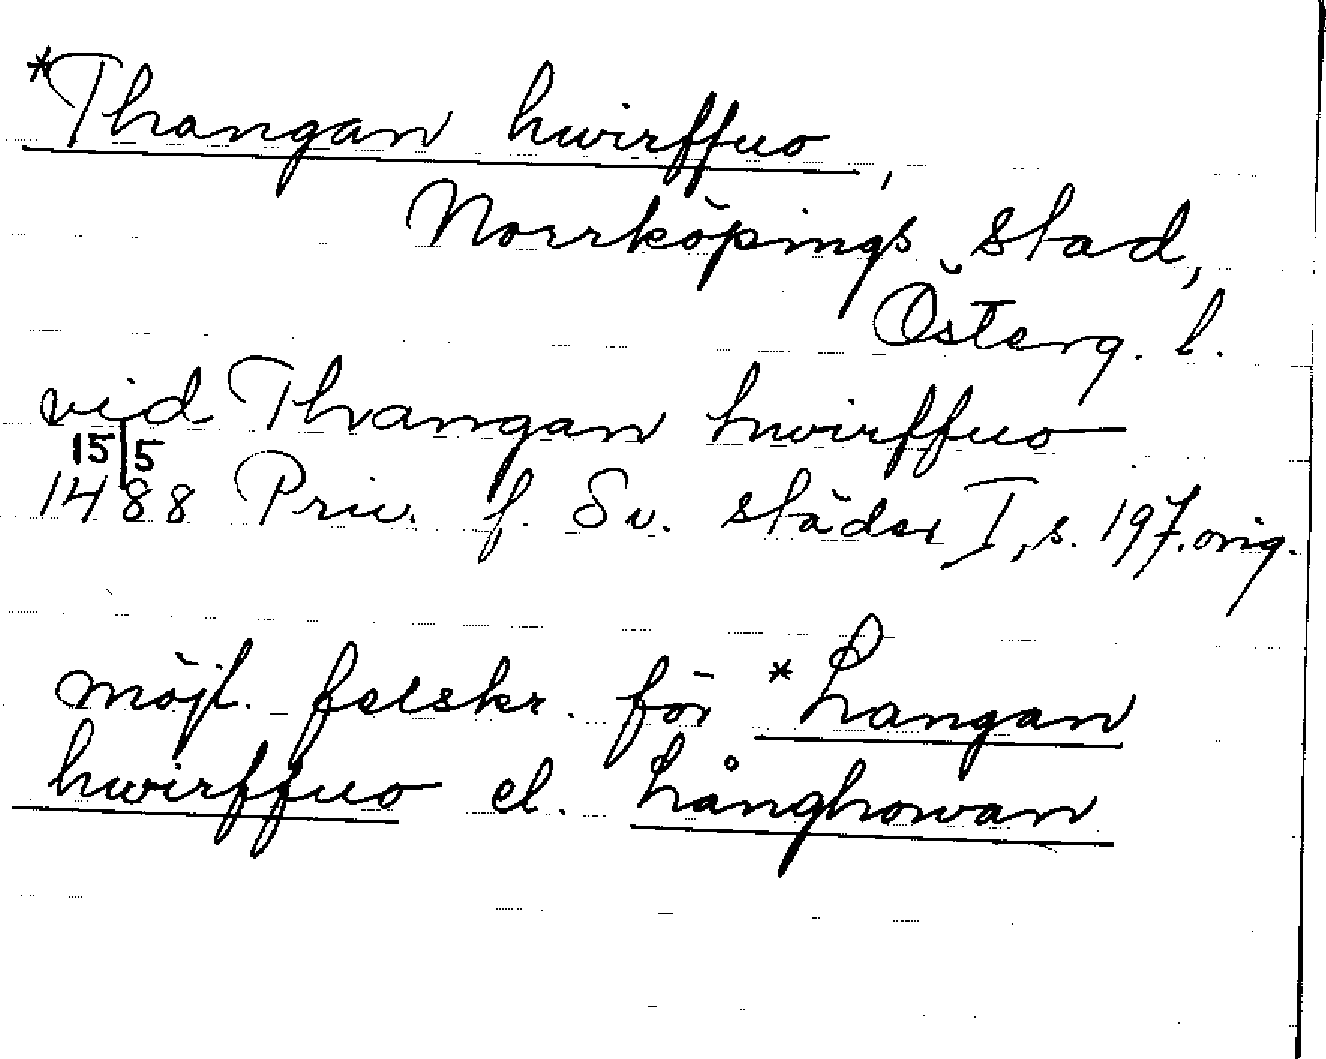 *Thangan hwirffuo,
Norrköpings stad,
Österg. l.
vid Thangan hwirffuo
15/5
1488 Priv. f. Sv. städer I, s. 197. orig.
möjl. felskr. för *Langan
hwirffuo el. Långhowan